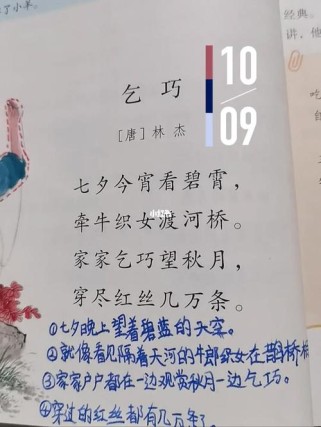 了小半。
经典。
讲，他
10
09
乞巧
[唐]林杰
七夕今宵看碧霄，
牵牛织女渡河桥。
家家乞巧望秋月，
穿尽红丝几万条。
①七夕晚上望着碧蓝的天空。
②就像看见隔着天河的牛郎织女在鹊桥
③家家户户都在一边观赏秋月一边乞巧。
④穿过的红丝都有几万条了